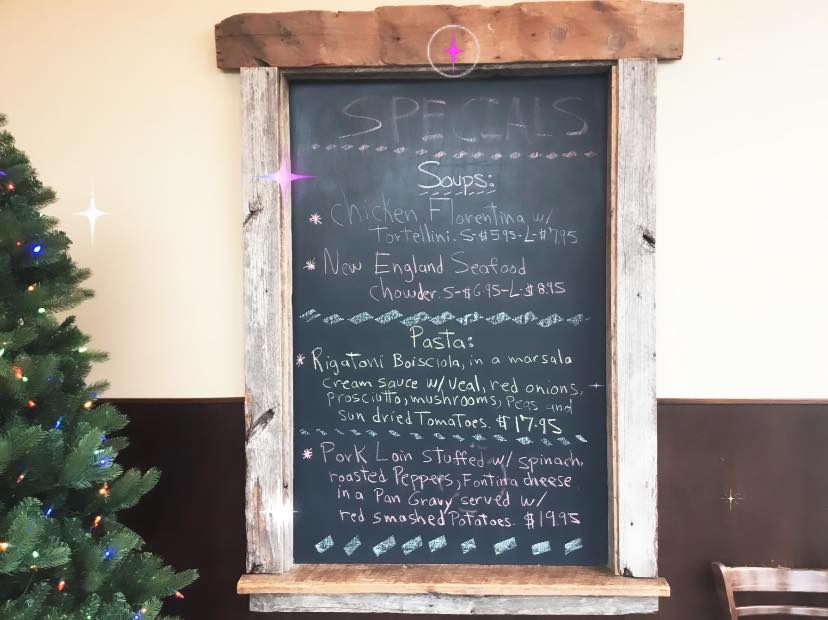 SPECIALS
Soups:
* Chicken Florentina w/
Tortellini. S-$5.95-L-$7.95
* New England Seafood
chowder. S-$6.95-L-$8.95
Pasta:
* Rigatoni Boisciola, in a marsala
cream sauce w/ veal, red onions,
prosciutto, mushrooms, Peas and
sun dried Tomatoes. $17.95
* Pork Loin stuffed w/ spinach,
roasted Peppers, Fontina cheese
in a Pan Gravy served w/
red smashed Potatoes. $19.95